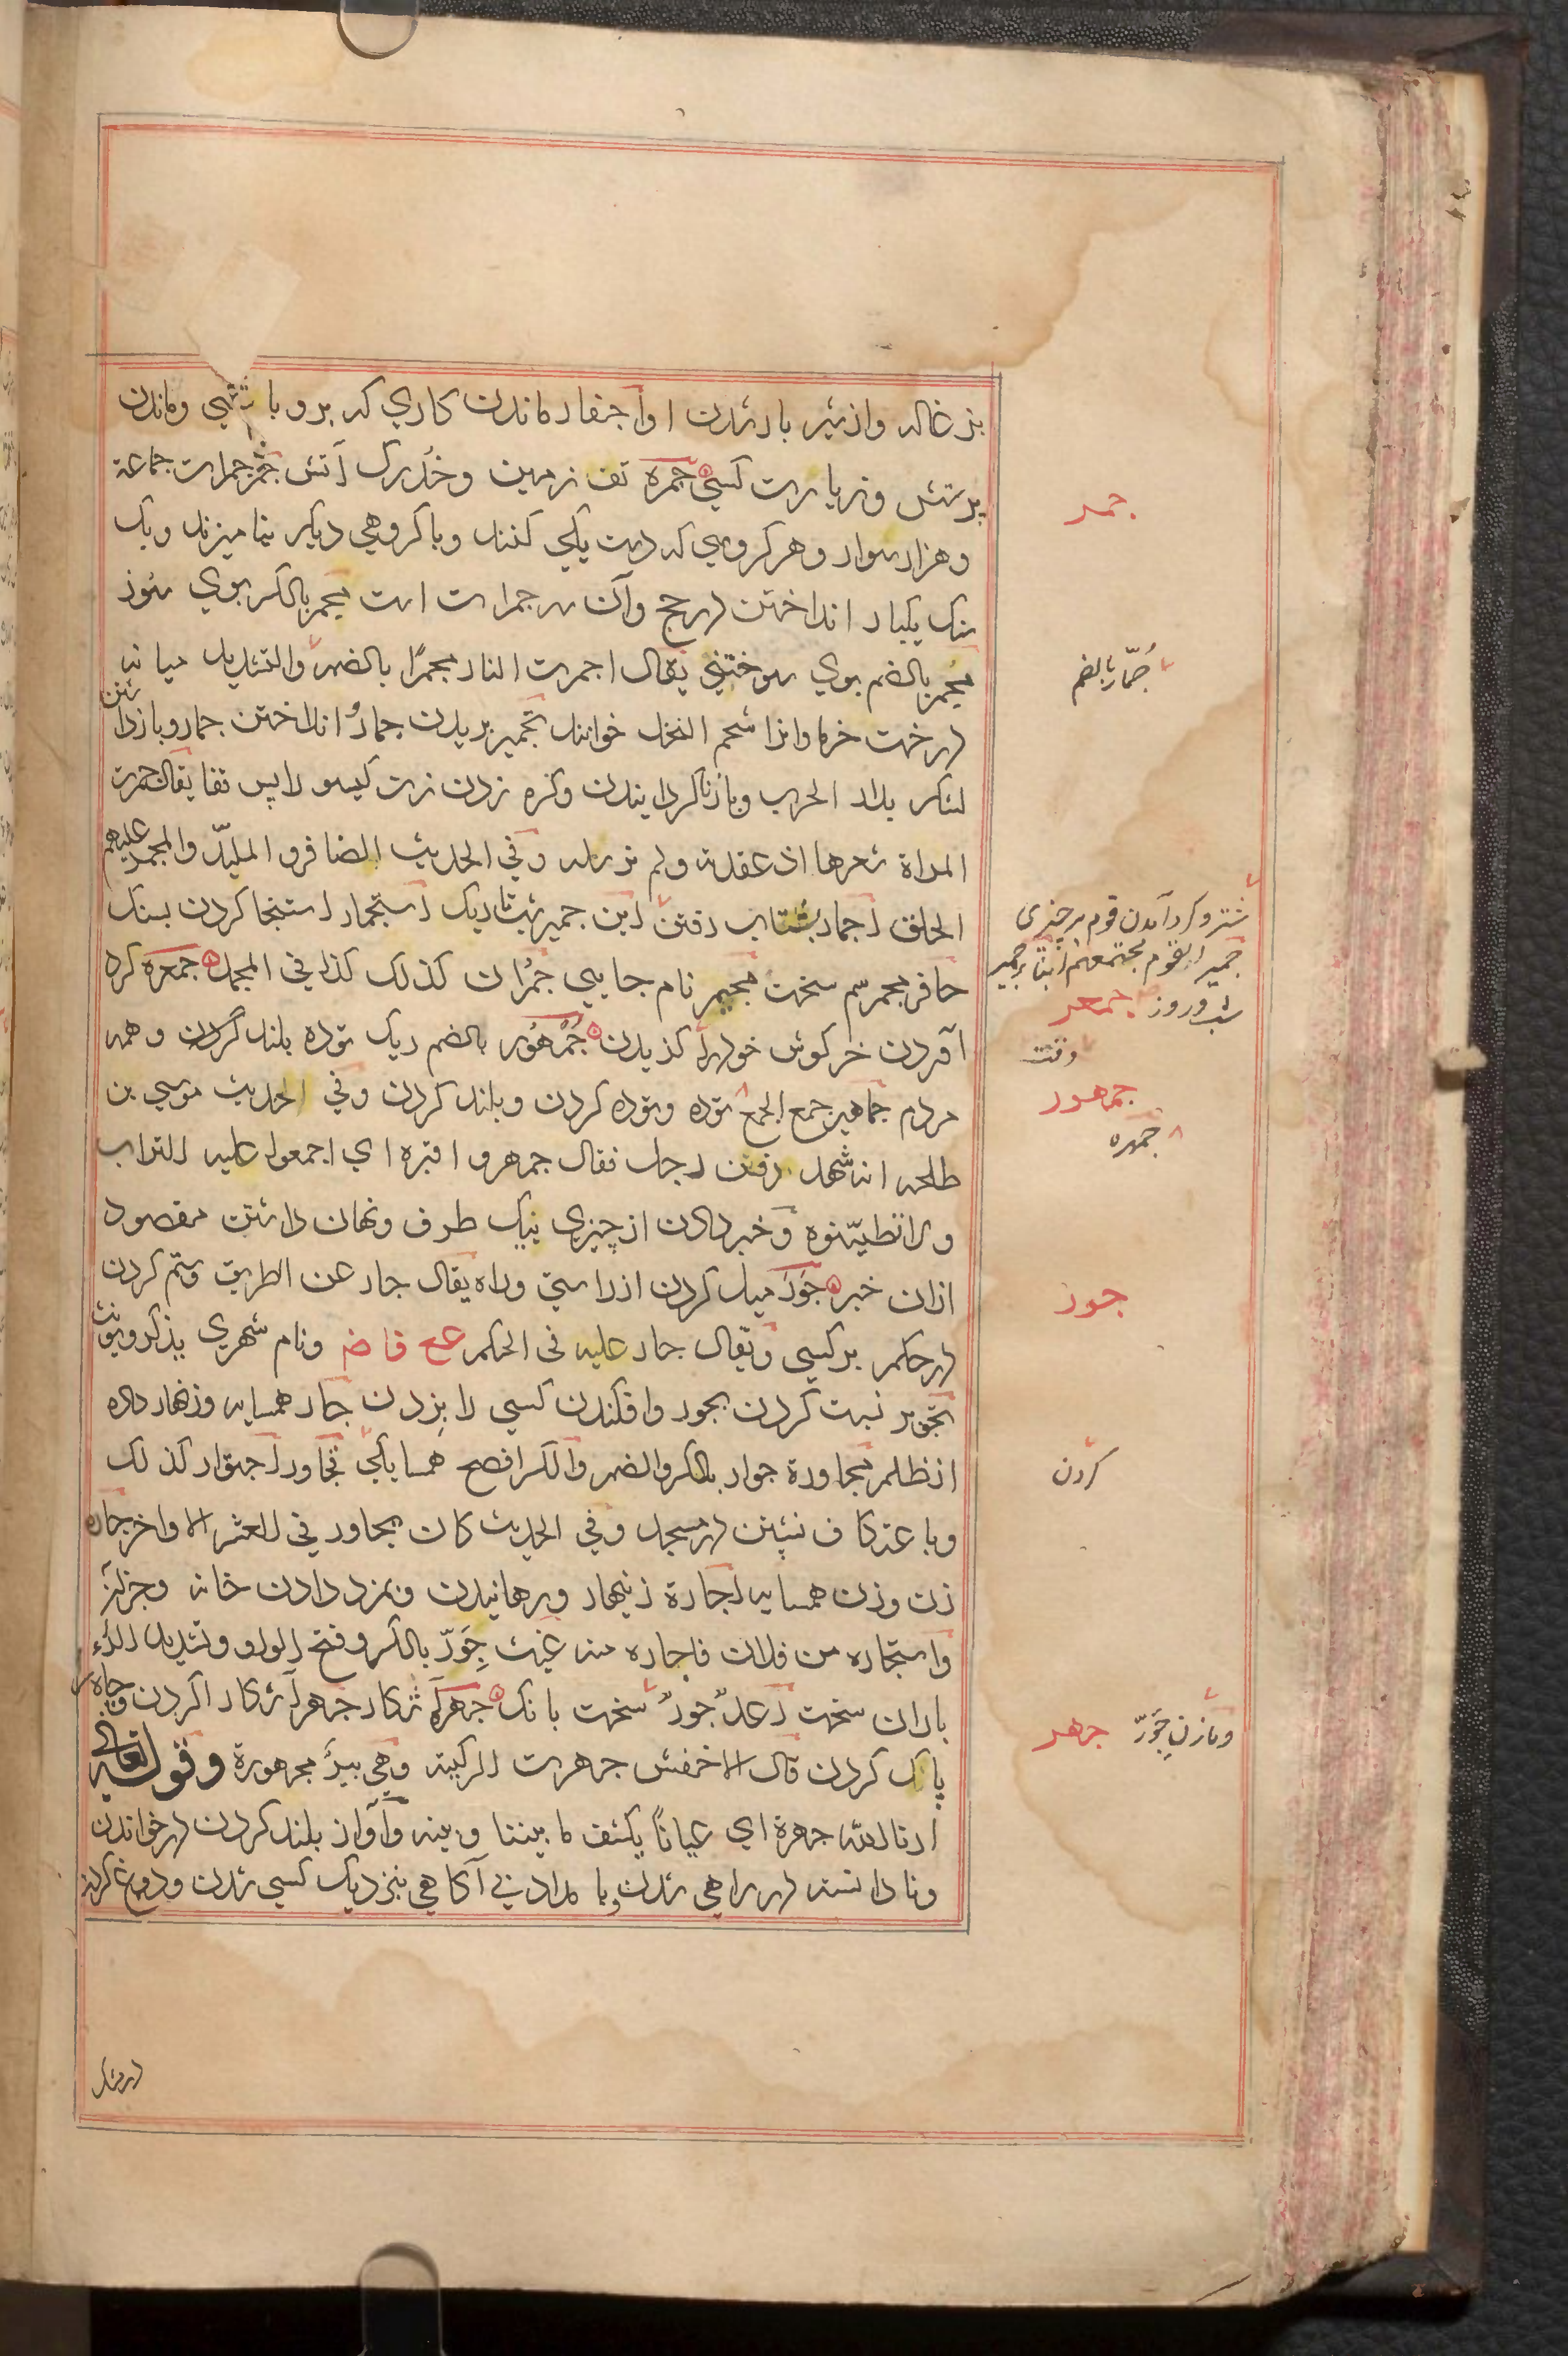 بزغاله واز شیر باز شدن اواجتفار ماندن کاري که برو باشي وماندن
برتش وزیارت کسي جمره تف زمین وخُدرک آتش جَمْر جمرات جماعة
وهزار سوار وهر کروهي که دست یکي کنند وبا کروهي دیکر نیامیزند ویک
سنک یکبار انداختن در حج وآن سه جمرات است مِجمر بالکسر بوي سوز
مُجمر بالضم بوي سوختني یقال اجمرت النار مجمرًا بالضم والتشدید میانه
درخت خرما وانرا شحم النخل خوانند تجمیر بریدن جمار وانداختن جمار وبازداشتن
لشکر بلاد الحرب وبازناکردانیدن وکره زدن زن کیسو را پس قفا یقال جمرت
المراة شعرها اذ عقدته ولم ترسله وفي الحدیث الضافر والملبّد والمجمر علیهم
الحلق اجمار بشتاب رفتن ابن جمیر شب تاریک استجمار استنجا کردن بسنک
حافر مجمر سم سخت مجیمر نام جایي جُمران کذلک کذا في المجمل جمعره کرد
آمدن خرکوش خود را کزیدن جُمْهُور بالضم ریک توده بلند کردن وهمه
مردم جماهیر جمع الجمع توده وتوده کردن وبلند کردن وفي الحدیث موسي بن
طلحه انه شهد دفن رجل فقال جمهروا قبره اي اجمعوا علیه التراب
ولا تطیّنوه وخبر دادن از چیزي بیک طرف ونهان داشتن مقصود
ازان خبر جَوْر میل کردن از راستي وراه یقال جار عن الطریق وستم کردن
در حکم بر کسي ویقال جار علیه في الحکم عع قاض ونام شهري یذکر ویونث
تجویر نسبت کردن بجور وافکندن کسي را بزدن جار همسایه وزنهار داده
از ظلم مجاورة جوار بالکسر والضم والکسر افصح همسایکي تجاور اجتوار کذلک
وباعتکاف نشستن در مسجد وفي الحدیث کان یجاور في العشر الاواخر جاره
زن وزن همسایه اجارة زنهار ورهانیدن وبمزد دادن خانه وجز آن
واستجاره من فلان فاجاره منه غیث جِوَرّ بالکسر وفتح الواو وتشدید الراء
باران سخت رعدٌ جورٌ سخت بانک جهره آشکار جهر آشکارا کردن وچاه
پاک کردن قال الاخفش جهرت الرکیة وهي بیر مجهورة وقوله تعالی
ارنا الله جهرة اي عیاناً یکشف ما بیننا وبینه وآواز بلند کردن در خواندن
ونادانسته در راهي شدن وبامداد بي آکاهي بنزدیک کسي شدن ودوغ کره
جمر
جُمّار بالضم
شتر وکرد آمدن قوم بر چیزي
جمیر القوم مجتمعهم ابنا جمیر
شب وروز
جمعر
جمهور
جمهره
جور
کردن
ومازن جِوَرّ
جهر